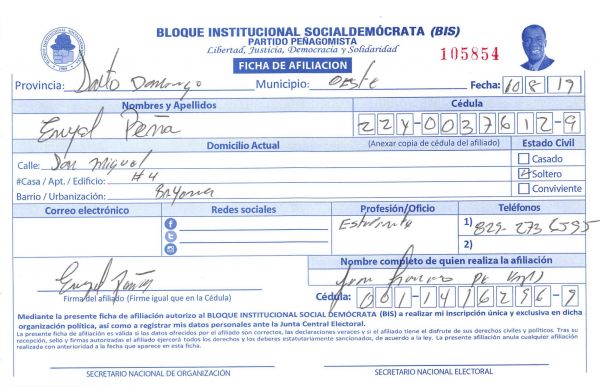 BLOQUE INSTITUCIONAL SOCIALDEMÓCRATA (BIS)
PARTIDO PEÑAGOMISTA
Libertad, Justicia, Democracia y Solidaridad
105854
FICHA DE AFILIACION
Provincia: Santo Domingo Municipio: oeste Fecha: 10 8 19
Nombres y Apellidos Cédula
Engel Peña 22Y-0037612-9
Domicilio Actual (Anexar copia de cédula del afiliado) Estado Civil
Calle: Don Miguel Casado
#Casa / Apt. / Edificio: #4 Soltero
Barrio / Urbanización: Conviviente
Correo electrónico Redes sociales Profesión/Oficio Teléfonos
Estudiante 1) 829-273 6595
2)
Nombre completo de quien realiza la afiliación
Engel Peña
Firma del afiliado (Firme igual que en la Cédula) Cédula: 001-1416296-9
Mediante la presente ficha de afiliación autorizo al BLOQUE INSTITUCIONAL SOCIAL DEMÓCRATA (BIS) a realizar mi inscripción única y exclusiva en dicha
organización política, así como a registrar mis datos personales ante la Junta Central Electoral.
La presente ficha de afiliación es valida si los datos ofrecidos por el afiliado son correctos, las declaraciones veraces y si el afiliado tiene el disfrute de sus derechos civiles y políticos. Tras su
recepción, sello y firmas autorizadas el afiliado ejercerá todos los derechos y los deberes estatutariamente sancionados, de acuerdo a la ley. La presente afiliación anula cualquier afiliación
realizada con anterioridad a la fecha que aparece en esta ficha.
SECRETARIO NACIONAL DE ORGANIZACIÓN SECRETARIO NACIONAL ELECTORAL